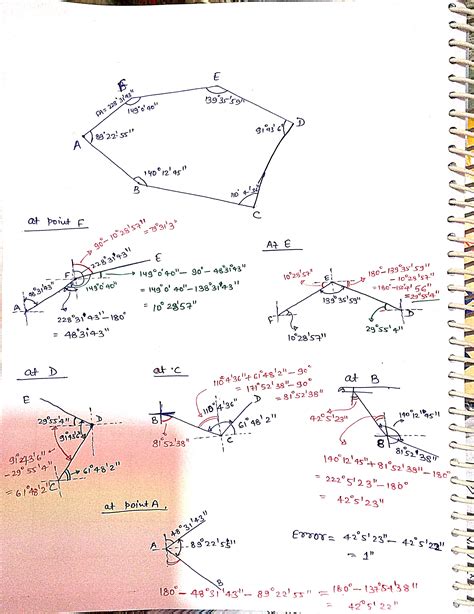 E
F
FA = 228°31'43"
149°0'40"
139°35'59"
91°43'6"
D
A
89°22'55"
140°12'45"
B
C
at point F
90° - 10°28'57"
228°31'43"
E
F
A
149°0'40"
149°0'40" - 90° - 48°31'43"
= 149°0'40" - 138°31'43"
= 10°28'57"
228°31'43" - 180°
= 48°31'43"
AT E
10°28'57"
E
180° - 139°35'59"
- 10°28'57"
= 29°55'4"
139°35'59"
F
D
10°28'57"
29°55'4"
at D
E
29°55'4"
D
91°43'6"
91°43'6"
- 29°55'4"
= 61°48'2"
C
61°48'2"
at C
110°4'36" + 61°48'2" - 90°
= 171°52'38" - 90°
= 81°52'38"
110°4'36"
D
B
61°48'2"
81°52'38"
C
at B
42°5'23"
140°12'45"
B
81°52'38"
140°12'45" + 81°52'38" - 180°
= 222°5'23" - 180°
= 42°5'23"
at point A,
48°31'43"
A
89°22'55"
B
Error = 42°5'23" - 42°5'22"
= 1"
180° - 48°31'43" - 89°22'55" = 180° - 137°54'38"
= 42°5'22"